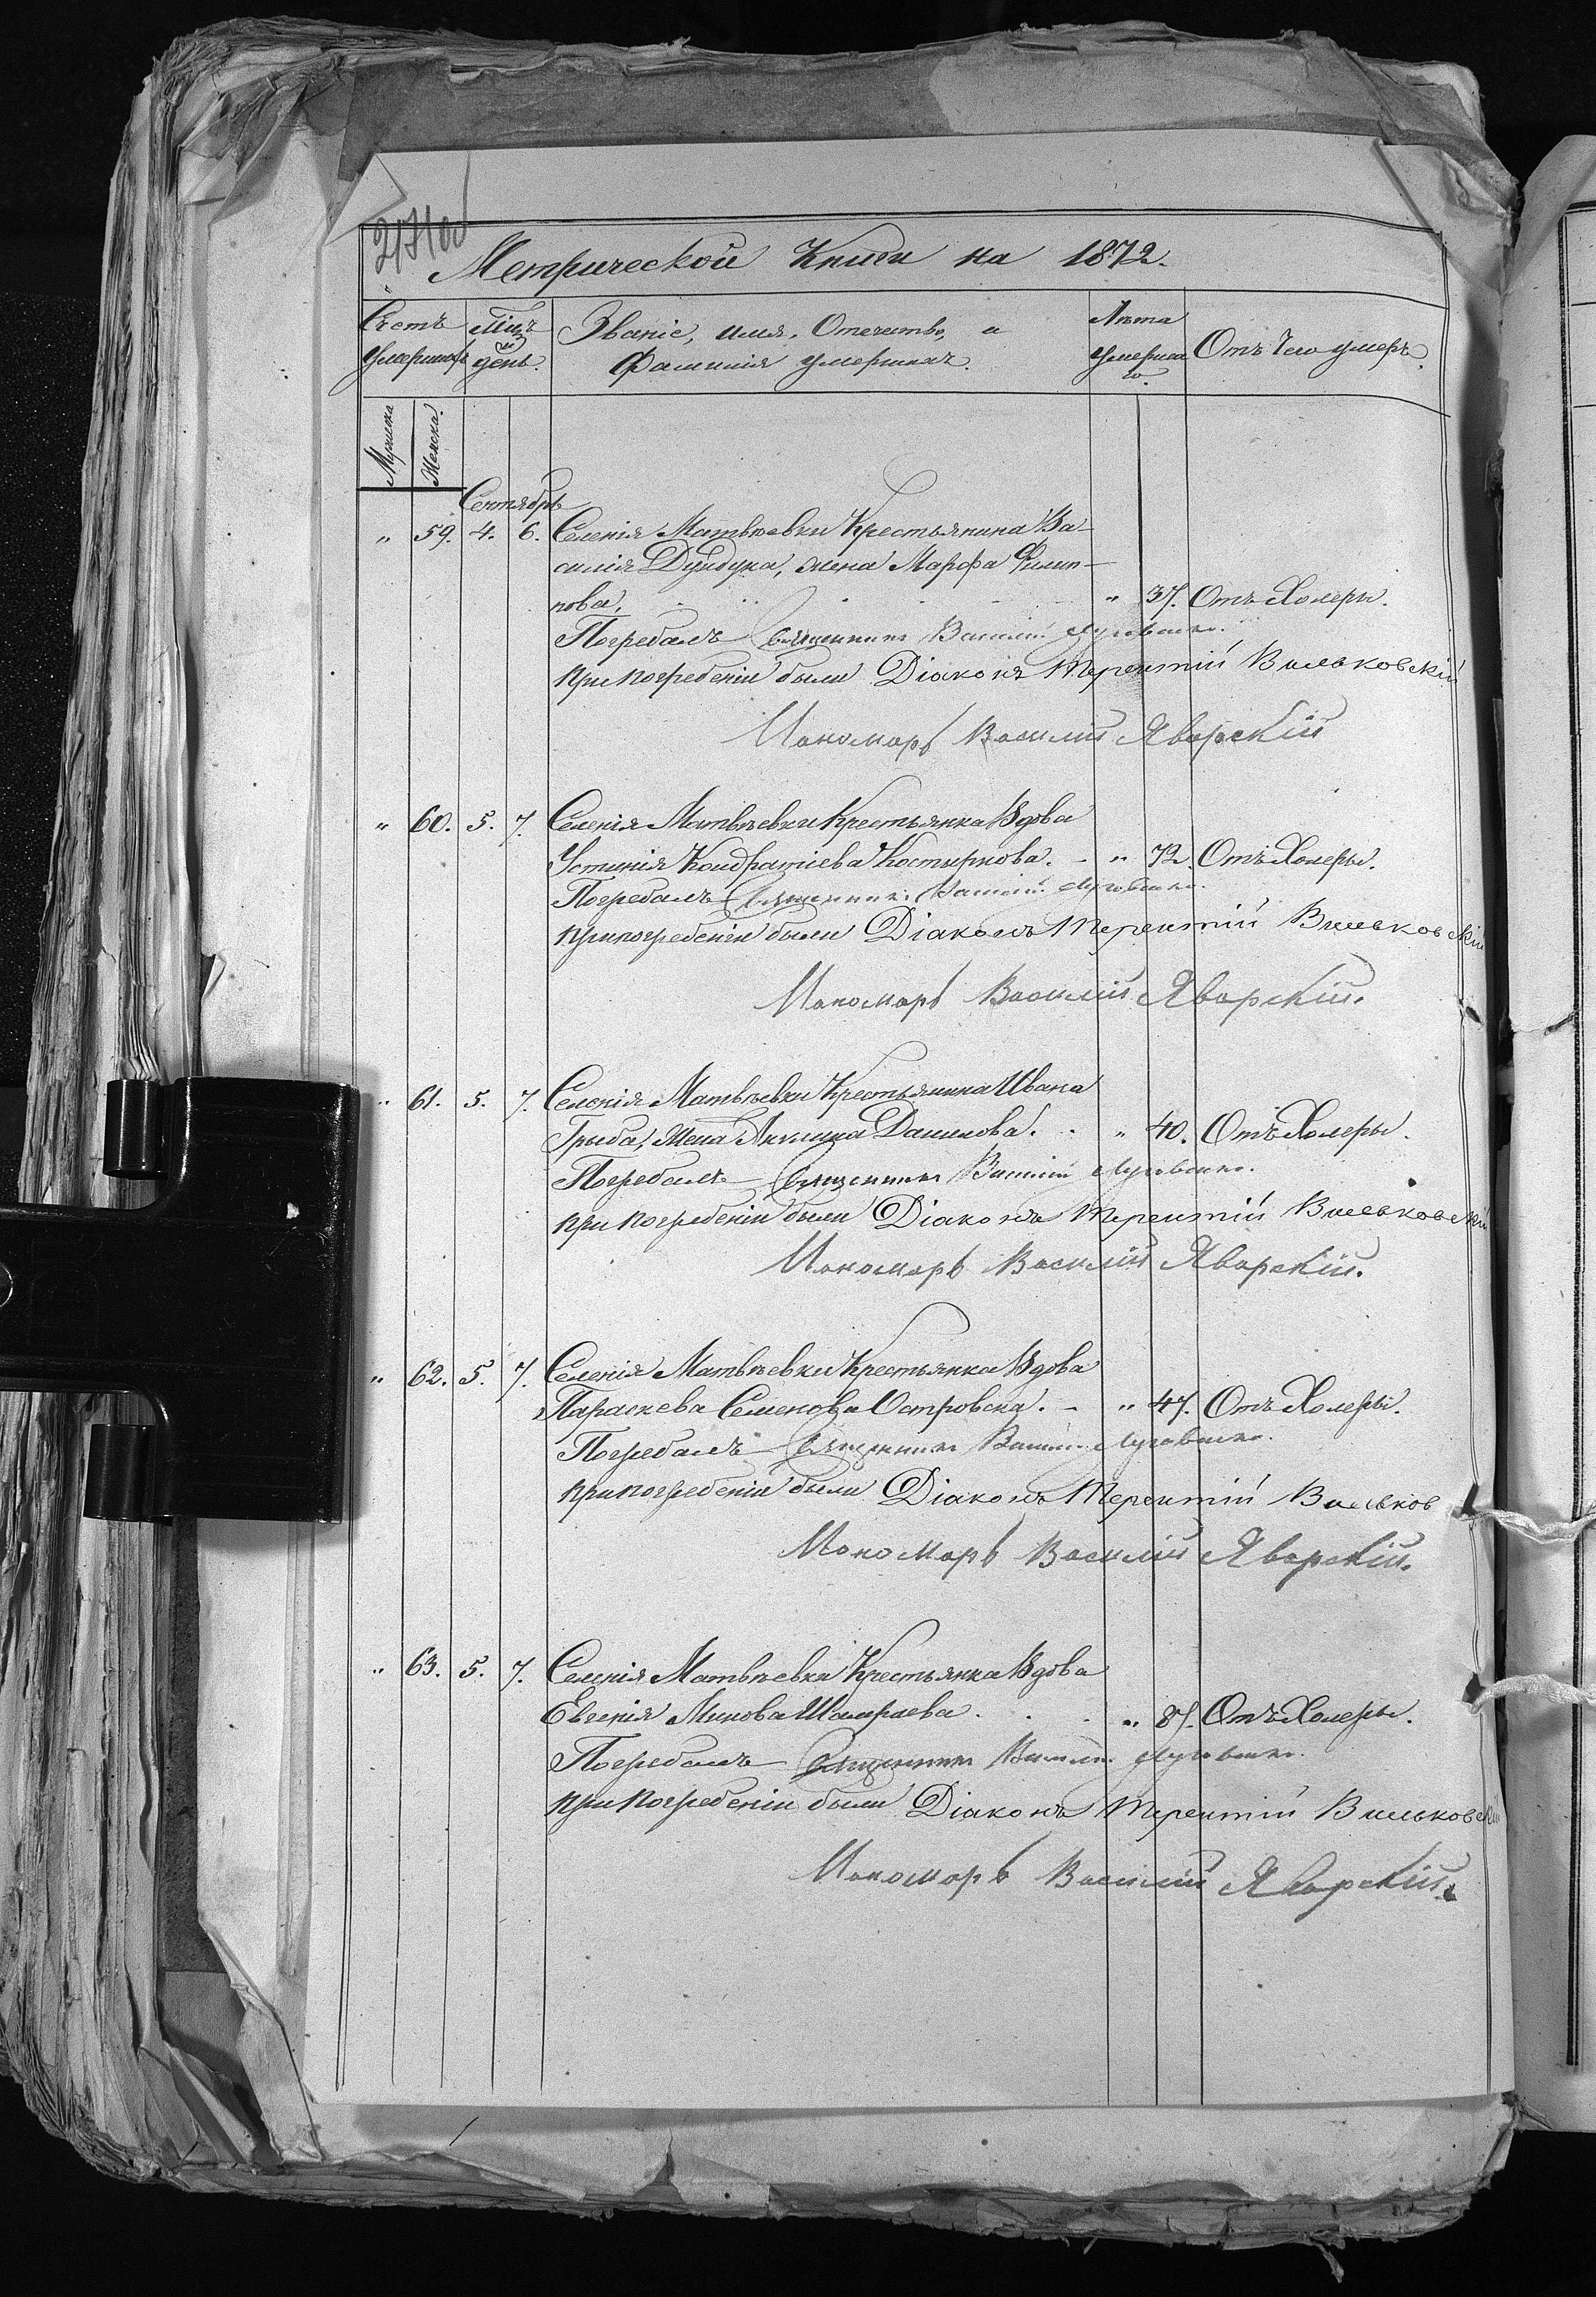 Метрической Книги на 1872.
Счетъ умершихъ
Мцъ и день.
Званіе, имя, Отечество, и
Фамилія умершихъ.
Лѣта умершаго.
Отъ Чего умеръ.
Мужеска
Женска.
Сентябрь
„ 59. 4. 6. Селенія Матвѣевки Крестьянина Ва-
силія Дундука, жена Марфа Филип-
пова, „ 37. Отъ Холеры.
Погребалъ Священникъ Василій
При погребеніи были Діаконъ Терентій Вильковскій
Пономарь Василій Яворскій
„ 60. 5. 7. Селенія Матвѣевки Крестьянка Вдова
Устинія Кондратіева Костыркова. „ 72. Отъ Холеры.
Погребалъ Священникъ Василій
При погребеніи были Діаконъ Терентій Вильковскій
Пономарь Василій Яворскій.
„ 61. 5. 7. Селенія Матвѣевки Крестьянина Ивана
Грыба, Жена Акилина Данилова. „ 40. Отъ Холеры.
Погребалъ Священникъ Василій
При погребеніи были Діаконъ Терентій Вильковскій
Пономарь Василій Яворскій.
„ 62. 5. 7. Селенія Матвѣевки Крестьянка Вдова
Параскева Семенова Островска. „ 47. Отъ Холеры.
Погребалъ Священникъ Василій
При погребеніи были Діаконъ Терентій Вильков
Пономарь Василій Яворскій.
„ 63. 5. 7. Селенія Матвѣевки Крестьянка Вдова
Евгенія Минова Шамраева. „ 87. Отъ Холеры.
Погребалъ Священникъ Василій
При погребеніи были Діаконъ Терентій Вильковскій
Пономарь Василій Яворскій.